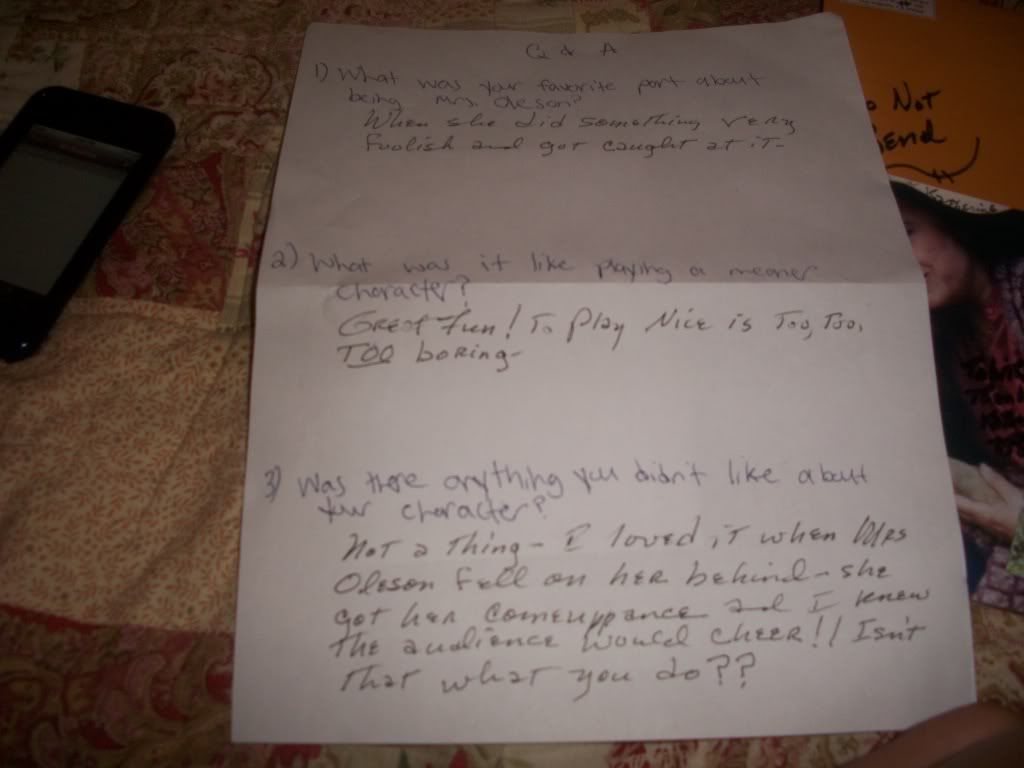 Q & A
1) What was your favorite part about
being Mrs. Oleson?
When she did something very
foolish and got caught at it-
2) What was it like playing a meaner
character?
Great fun! To Play Nice is Too, Too,
TOO boring-
3) Was there anything you didn't like about
your character?
Not a thing - I loved it when Mrs
Oleson fell on her behind - she
got her comeuppance and I knew
the audience would cheer!! Isn't
that what you do??
Not
Bend
Katherine